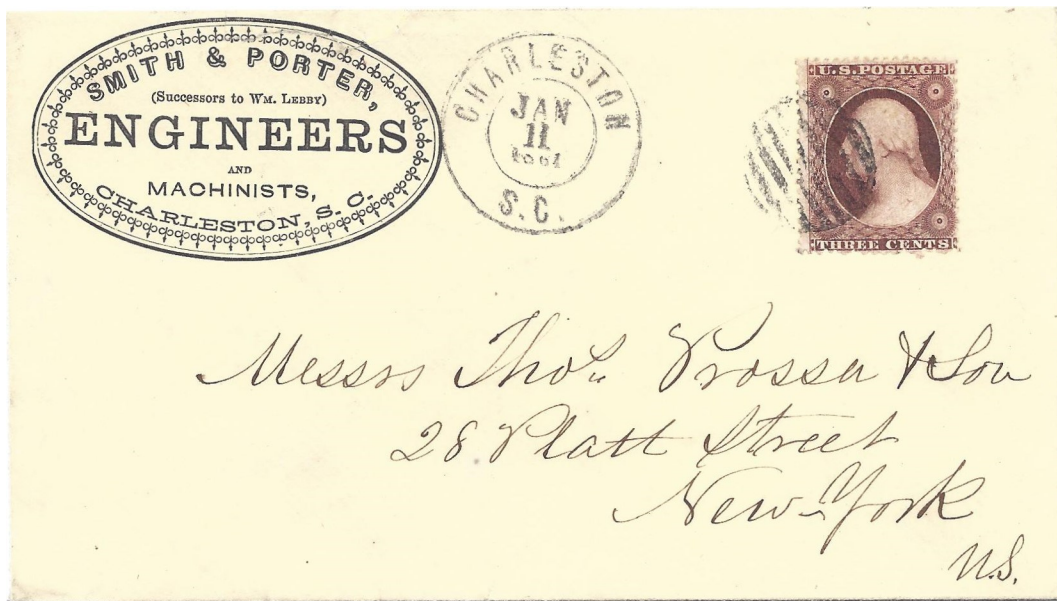 SMITH & PORTER,
(Successors to WM. LEBBY)
ENGINEERS
AND
MACHINISTS,
CHARLESTON, S. C.
CHARLESTON
JAN
11
1861
S.C.
U.S. POSTAGE
THREE CENTS
Messrs Thos. Prosser & Son
28 Platt Street
New York
U.S.